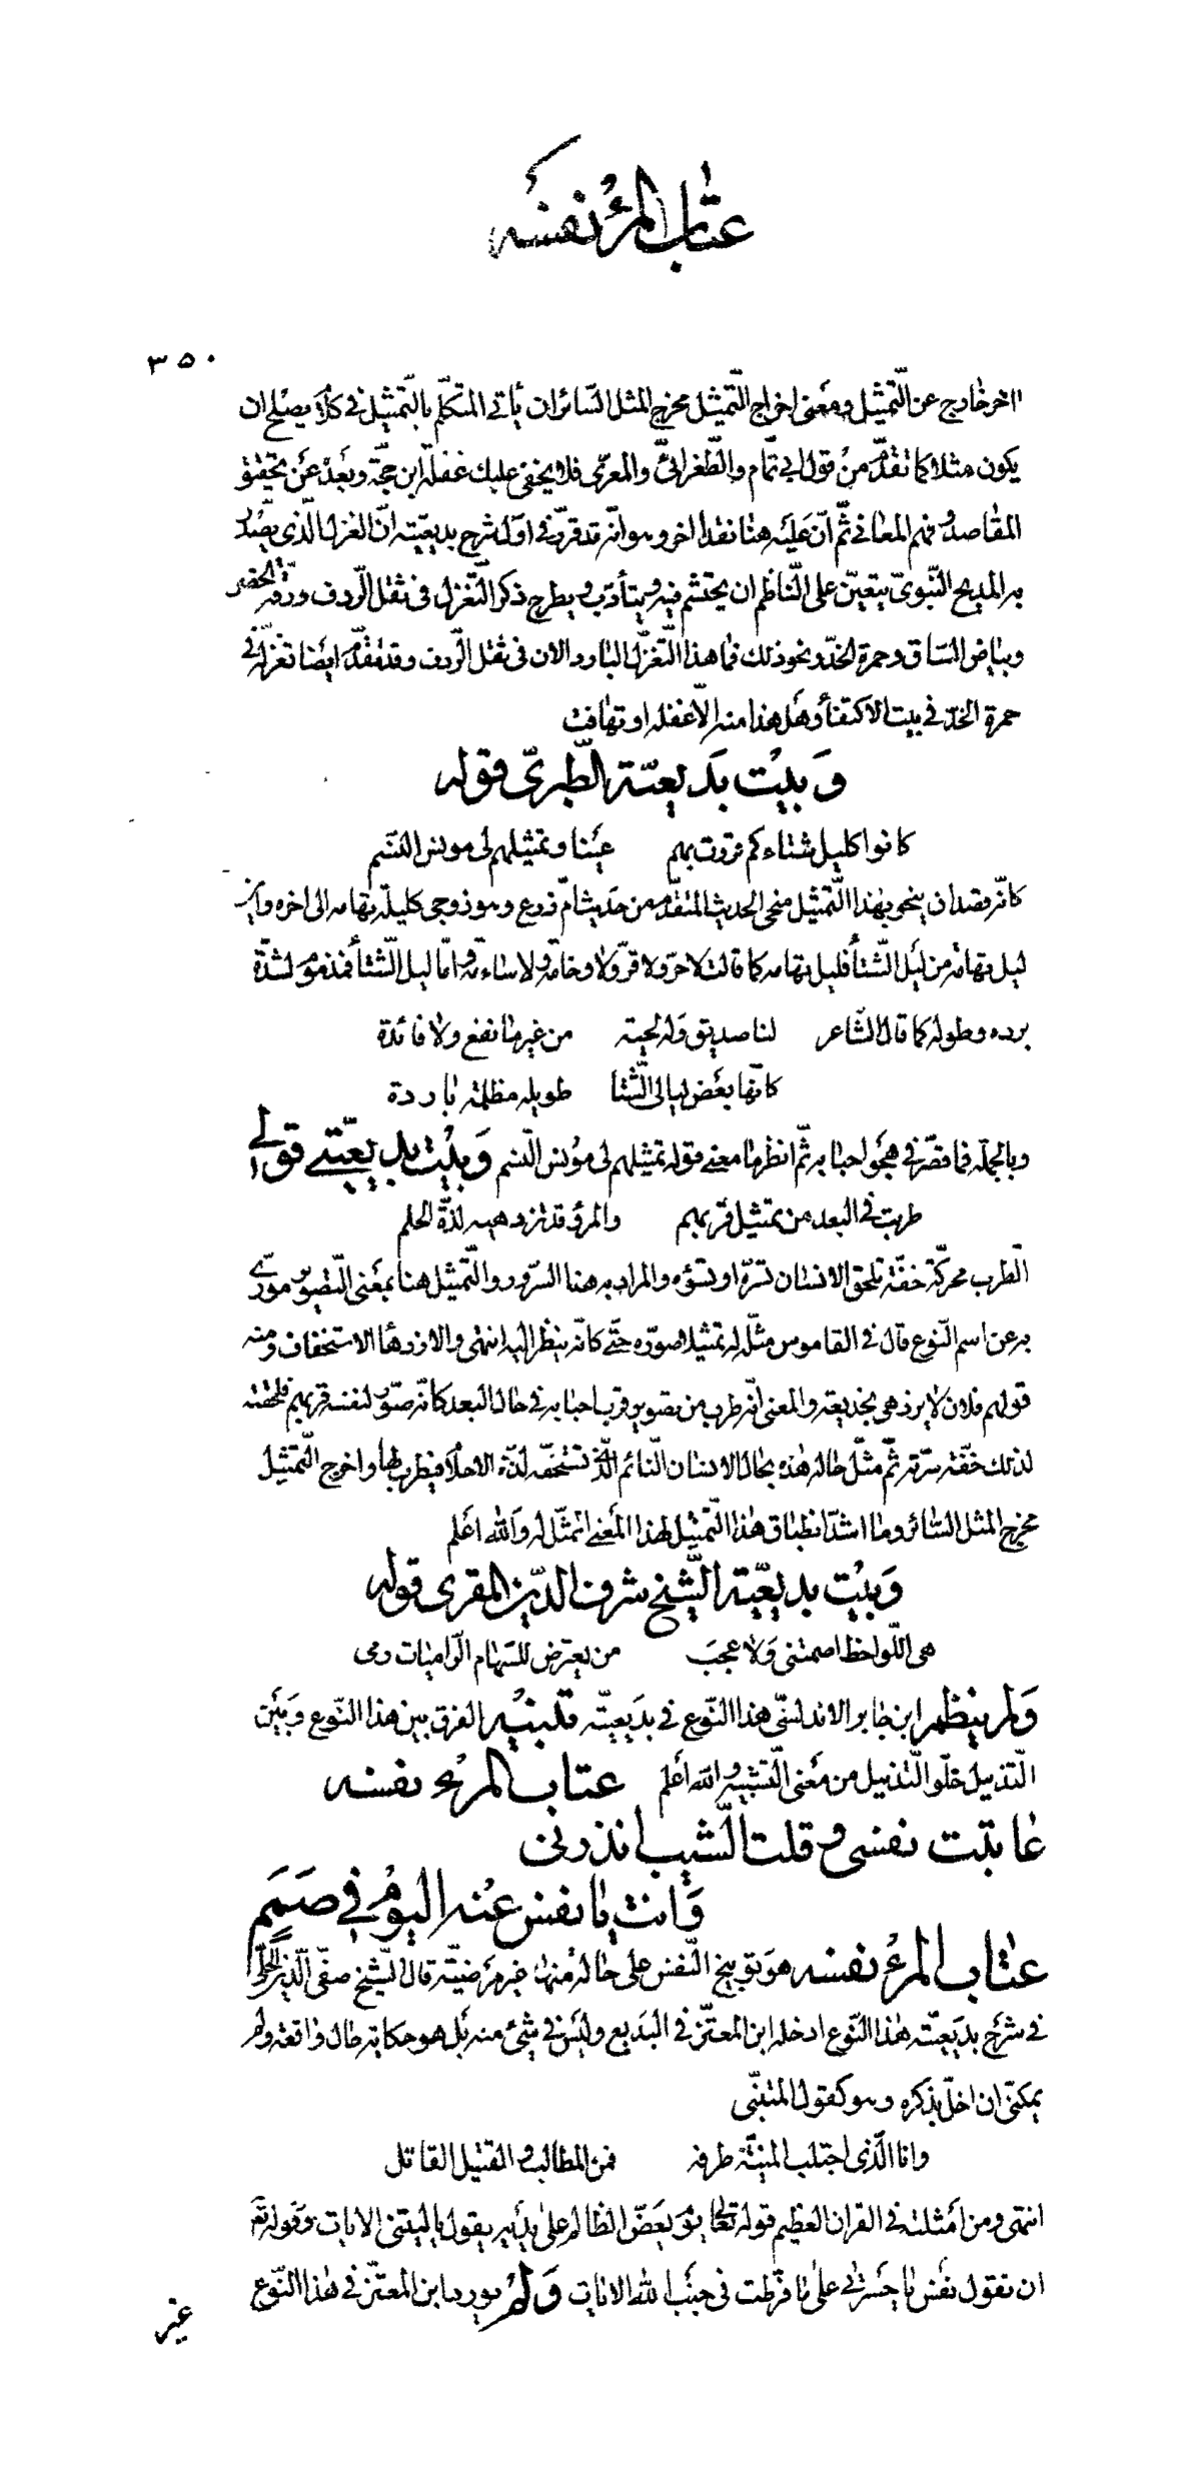 عتاب المرء نفسه
٣٥٠
اخر خارج عن التّمثيل ومعنى اخراج التّمثيل مخرج المثل السّائر ان يأتى المتكلّم بالتّمثيل فى كلام يصلح ان
يكون مثلا كما تقدّم من قول ابى تمّام والطّغرائىّ والمعرّى فلا يخفى عليك غفلة ابن حجّة وبعده عن تحقيق
المقاصد وفهم المعانى ثمّ انّ عليه هنا نقدا اخر وهو انّه قد قرّر فى اوّل شرح بديعيّته انّ الغزل الّذى يصدّر
به المديح النّبوىّ يتعيّن على النّاظم ان يحتشم فيه ويتأدّب ويطرح ذكر التّغزل فى ثقل الرّدف ورقّة الخصر
وبياض السّاق وحمرة الخدّ ونحو ذلك فما هذا التّغزّل البارد الان فى ثقل الرّدف وقد تقدّم ايضا تغزّله فى
حمرة الخدّ فى بيت الاكتفأ وهل هذا منه الّا غفله او تهافت
وبيت بديعيّة الطّبرىّ قوله
كانوا كليل شتاء كم قررت بهم عينا وتمثيلهم لى مونس النسم
كانّه قصد ان ينحو بهذا التّمثيل منحى الحديث المتقدّم من حديث امّ زرع وهو زوجى كليل تهامه الى اخره واين
ليل تهامة من ليل الشّتأ فليل تهامه كما قالت لا حرّ ولا قرّ ولا وخامة ولا سئامة وامّا ليل الشّتأ فمذموم لشدّة
برده وطوله كما قال الشّاعر لنا صديق وله لحيته من غير ما نفع ولا فائدة
كانّها بعض ليالى الشّتأ طويله مظلمة باردة
وبالجملة فما قصّر فى هجو احبابه ثمّ انظر ما معنى قوله تمثيلهم لى مونس النّسم وبيت بديعيّتى قولى
طربت فى البعد من تمثيل قربهم والمرؤ قد تزدهيه لذّة الحلم
الطّرب محرّكة خفّة تلحق الانسان تسرّه او تسؤه والمراد به هنا السّرور والتّمثيل هنا بمعنى التّصوير مورّى
به عن اسم النّوع قال فى القاموس مثّله له تمثيلا صوّره حتّى كانّه ينظر اليه انتهى والازدهأ الاستخفاف ومنه
قولهم فلان لا يزدهى بخديعة والمعنى انّه طرب من تصوير قرب احبابه فى حال البعد كانّه صوّر لنفسه قربهم فلحقته
لذلك خفّة سرّته ثمّ مثّل حاله هذه بحال الانسان النّائم الّذى تستخفّه لذّة الاحلام فيطرب لها واخرج التّمثيل
مخرج المثل السّائر وما اشدّ انطباق هذا التّمثيل لهذا المعنى الممثّل له والله اعلم
وبيت بديعيّة الشّيخ شرف الدّين المقرى قوله
هى اللّواحظ اصمتنى ولا عجب من يعترض للسّهام الرّاميات رمى
ولم ينظم ابن جابر الاندلسىّ هذا النّوع فى بديعيّته تنبيه الفرق بين هذا النّوع وبين
التّذييل خلّو التّذييل من معنى التّشبيه والله اعلم عتاب المرء نفسه
عاتبت نفسى وقلت الشّيب انذرنى
وانت يا نفس عنه اليوم فى صمم
عتاب المرء نفسه هو توبيخ النّفس على حالة منها غير مرضيّة قال الشّيخ صفىّ الدّين الحلّى
فى شرح بديعيّته هذا النّوع ادخله ابن المعتزّ فى البديع وليس فى شئ منه بل هو حكاية حال واقعة ولم
يمكنّى ان اخلّ بذكره وهو كقول المتنبّى
وانا الّذى اجتلب المنيّة طرفه فمن المطالب والقتيل القاتل
انتهى ومن امثلته فى القران العظيم قوله تعالى يوم يعضّ الظّالم على يديه يقول يا ليتنى الايات وقوله تع
ان تقول نفس يا حسرتى على ما فرّطت فى جنب الله الايات ولم يورد ابن المعتزّ فى هذا النّوع
غير